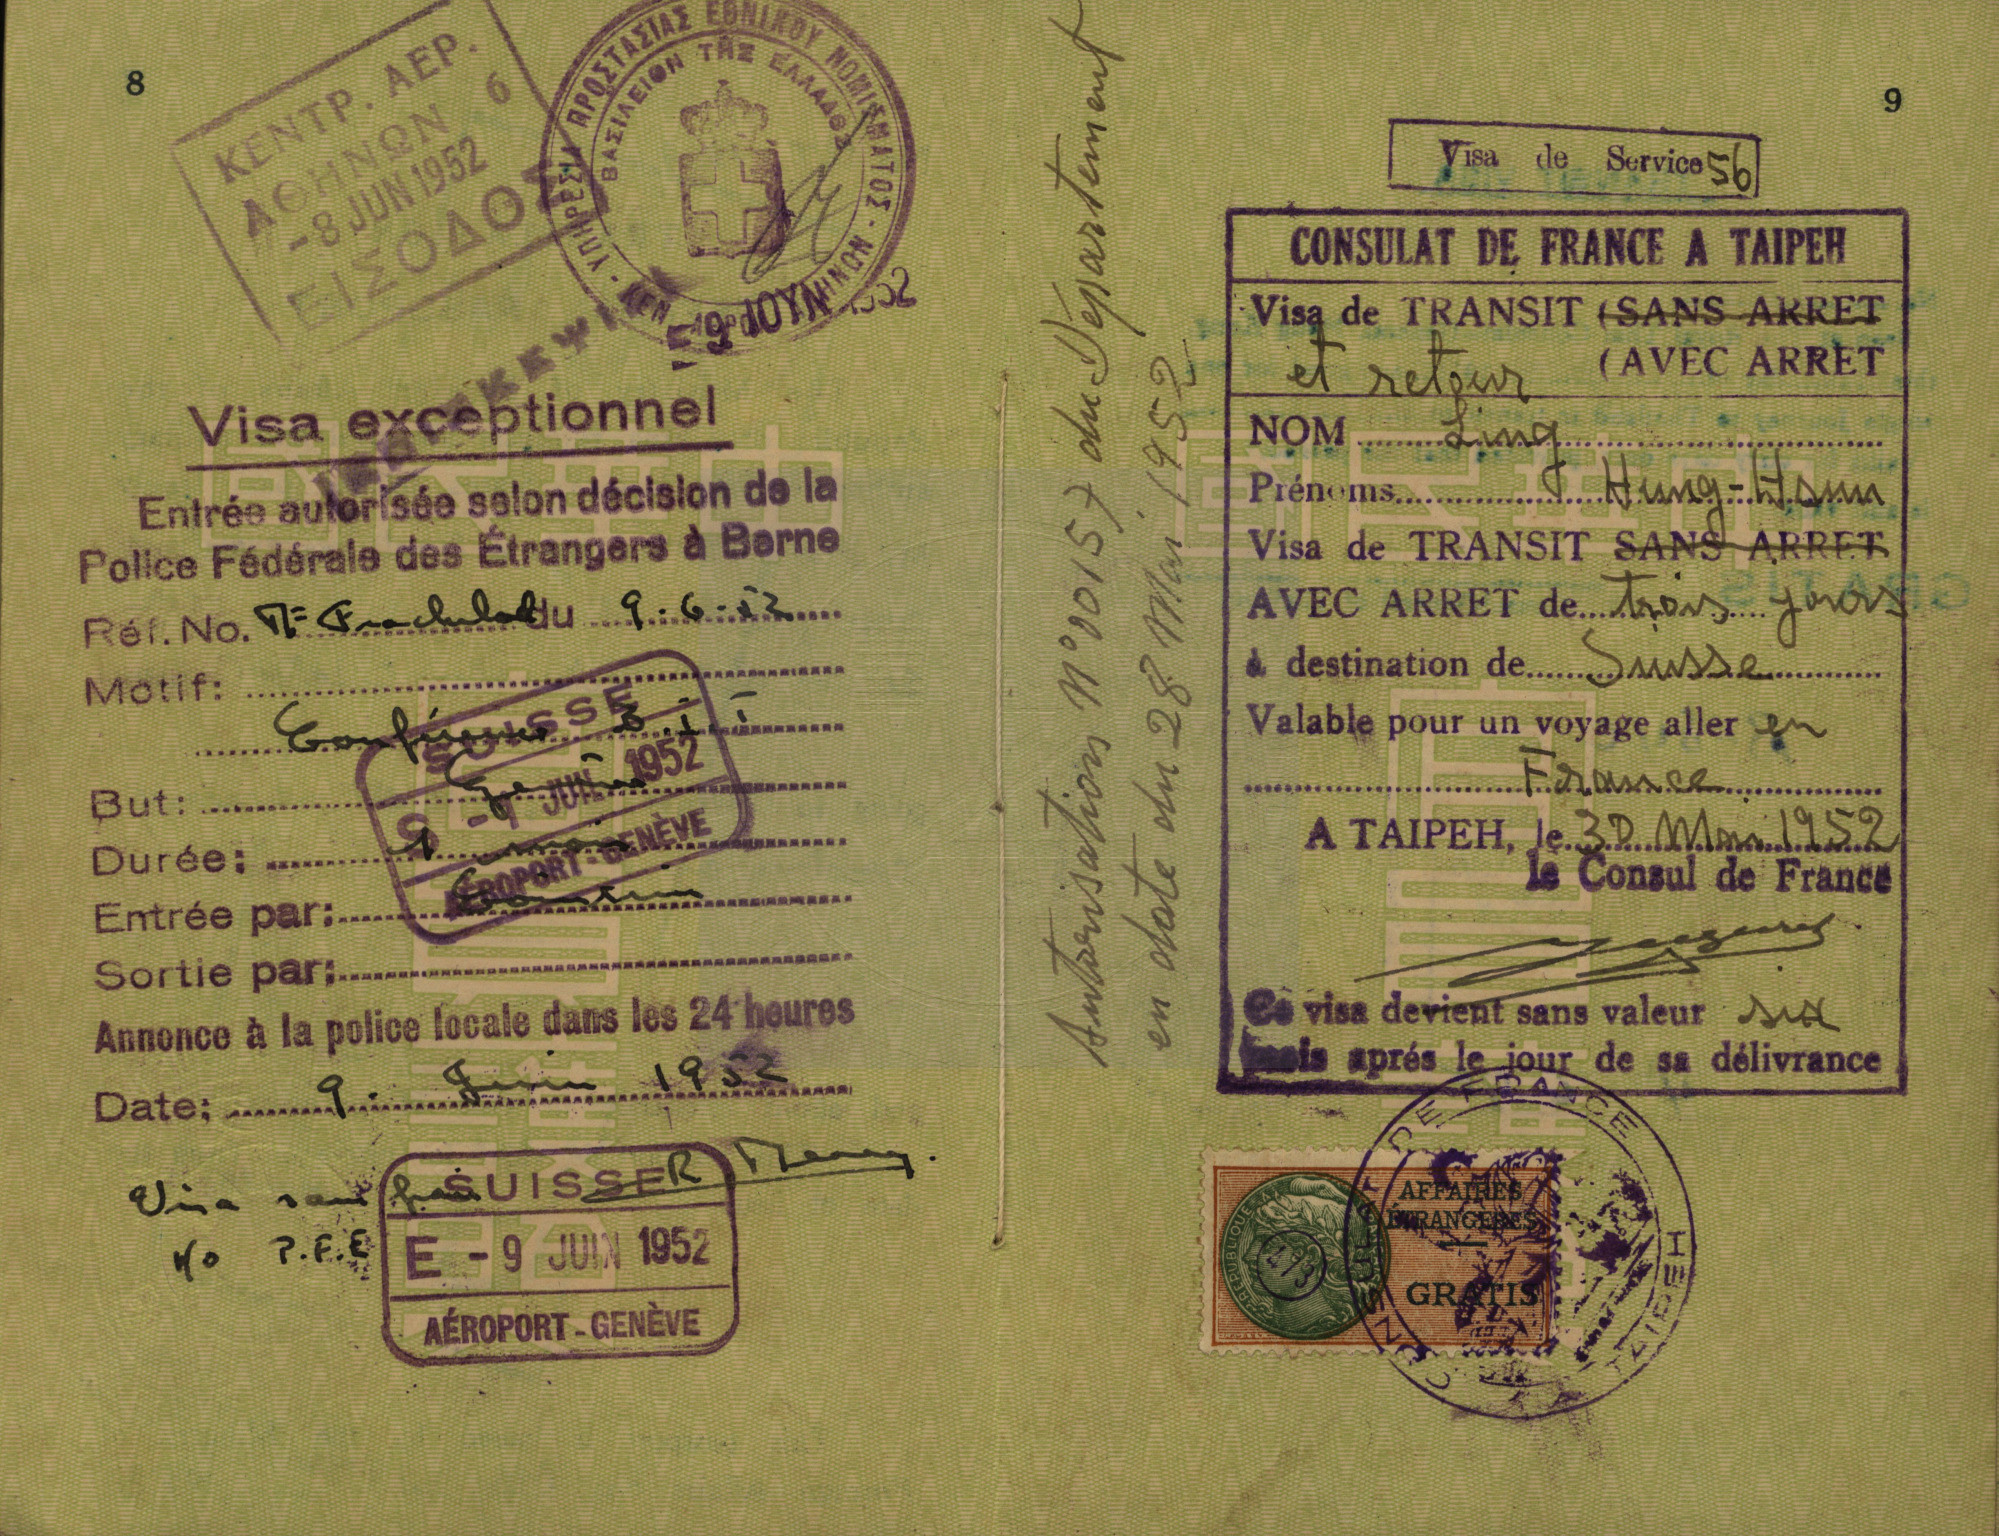 8
ΚΕΝΤΡ. ΑΕΡ.
ΑΘΗΝΩΝ 6
-8 JUN 1952
ΕΙΣΟΔΟΣ
ΥΠΗΡΕΣΙΑ ΠΡΟΣΤΑΣΙΑΣ ΕΘΝΙΚΟΥ ΝΟΜΙΣΜΑΤΟΣ
ΒΑΣΙΛΕΙΟΝ ΤΗΣ ΕΛΛΑΔΟΣ
9 ΙΟΥΝ 1952
Visa exceptionnel
Entrée autorisée selon décision de la
Police Fédérale des Étrangers à Berne
Réf. No. du 9.6.52
Motif:
Conférence B.I.T
But: Genève
Durée: 1 mois
Entrée par: Cointrin
Sortie par:
Annonce à la police locale dans les 24 heures
Date: 9. Juin 1952
Visa sans frais
No P.F.E
SUISSE
S -9 JUIN 1952
AÉROPORT-GENÈVE
SUISSE
E -9 JUIN 1952
AÉROPORT-GENÈVE
Autorisation N° 00157 du Département
en date du 28 Mai 1952
9
Visa de Service 56
CONSULAT DE FRANCE A TAIPEH
Visa de TRANSIT (SANS ARRET
et retour (AVEC ARRET
NOM Ling
Prénoms Hung-Hsun
Visa de TRANSIT SANS ARRET
AVEC ARRET de trois jours
à destination de Suisse
Valable pour un voyage aller en
France
A TAIPEH, le 30 Mai 1952
le Consul de France
Ce visa devient sans valeur six
mois aprés le jour de sa délivrance
AFFAIRES
ÉTRANGÈRES
GRATIS
CONSULAT DE FRANCE
TAIPEH